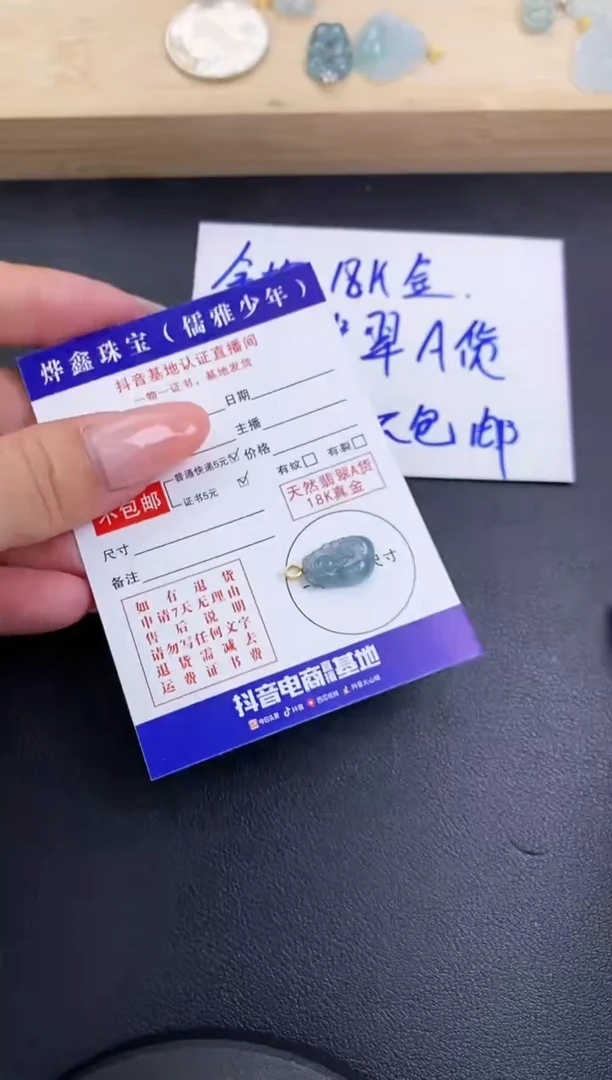 18K金.
翠A货
包邮
烨鑫珠宝（儒雅少年）
抖音基地认证直播间
一物一证书，基地发货
日期
主播
普通快递5元 价格
不包邮
证书5元
有纹 有裂
天然翡翠A货
18K真金
尺寸
备注
尺寸
如有退货
申请7天无理由
售后说明
请勿写任何文字
退货需减去
运费证书费
抖音电商直播基地
今日头条 抖音 西瓜视频 抖音火山版